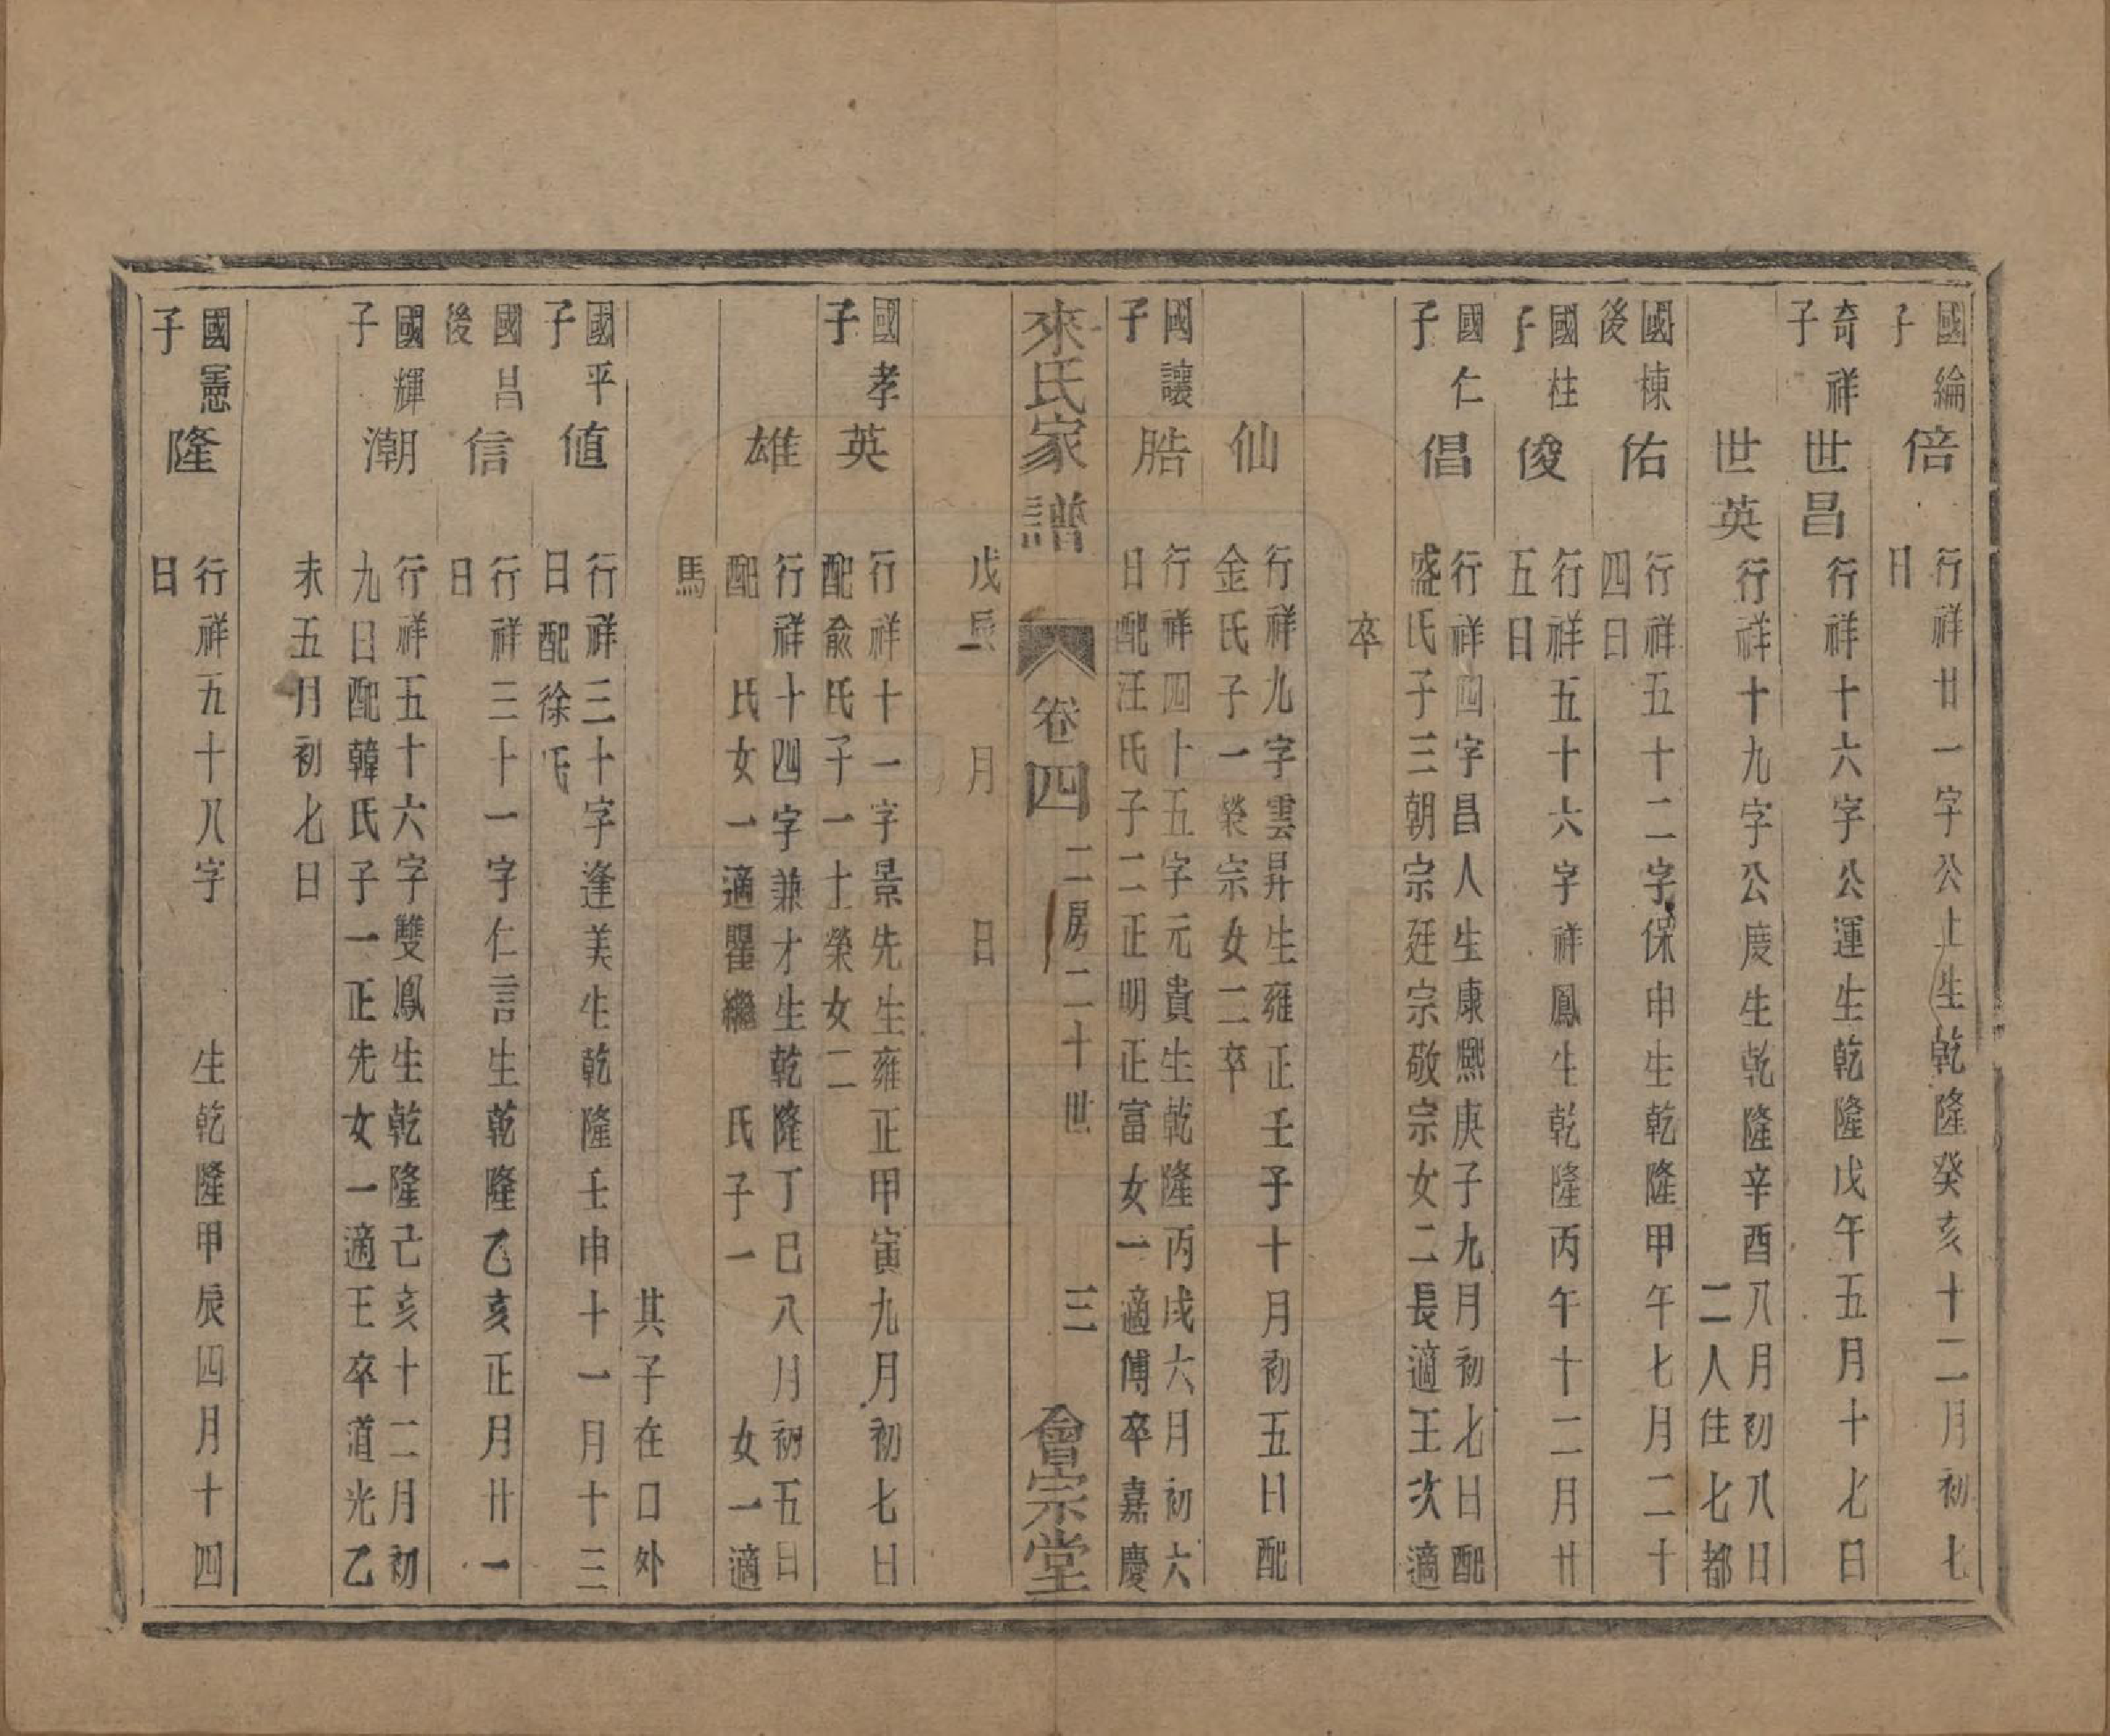 國綸
子
倍
行祥廿一字公上生乾隆癸亥十二月初七
日
奇祥
子
世昌
行祥十六字公運生乾隆戊午五月十七日
世英
行祥十九字公慶生乾隆辛酉八月初八日
二人住七都
國棟
後
佑
行祥五十二字保申生乾隆甲午七月二十
四日
國柱
子
俊
行祥五十六字祥鳳生乾隆丙午十二月廿
五日
國仁
子
倡
行祥四字昌人生康熙庚子九月初七日配
盛氏子三朝宗廷宗敬宗女二長適王次適
卒
仙
行祥九字雲昇生雍正壬子十月初五日配
金氏子一榮宗女二卒
國讓
子
皓
行祥四十五字元貴生乾隆丙戌六月初六
日配汪氏子二正明正富女一適傅卒嘉慶
來氏家譜
卷四
二房二十世
三
會宗堂
戊辰 月 日
國孝
子
英
行祥十一字景先生雍正甲寅九月初七日
配兪氏子一士榮女二
雄
行祥十四字兼才生乾隆丁巳八月初五日
配 氏女一適瞿繼 氏子一 女一適
馬
其子在口外
國平
子
値
行祥三十字逢美生乾隆壬申十一月十三
日配徐氏
國昌
後
信
行祥三十一字仁言生乾隆乙亥正月廿一
日
國輝
子
潮
行祥五十六字雙鳳生乾隆己亥十二月初
九日配韓氏子一正先女一適王卒道光乙
未五月初七日
國憲
子
隆
行祥五十八字 生乾隆甲辰四月十四
日